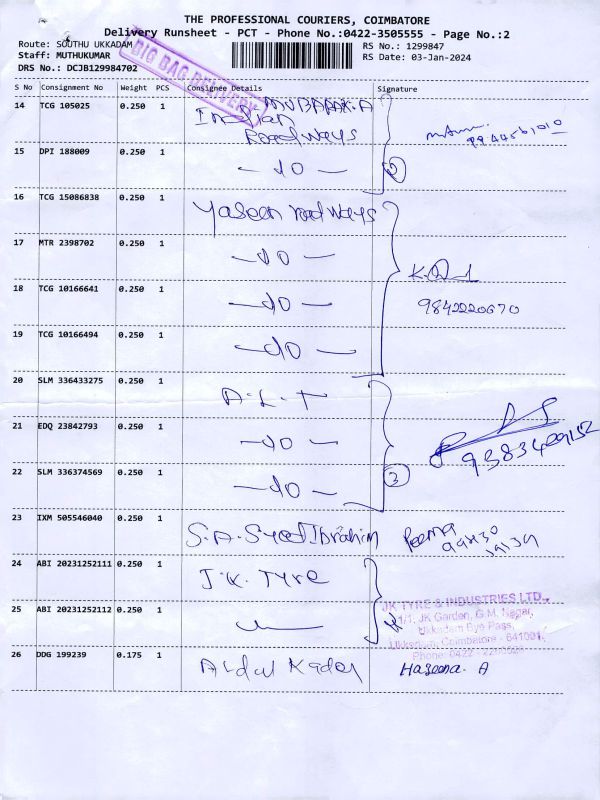 THE PROFESSIONAL COURIERS, COIMBATORE
Delivery Runsheet - PCT - Phone No.:0422-3505555 - Page No.:2
Route: SOUTHU UKKADAM
RS No.: 1299847
Staff: MUTHUKUMAR
RS Date: 03-Jan-2024
DRS No.: DCJB129984702
BIG BAG DELIVERY
S No Consignment No Weight PCS Consignee Details Signature
14 TCG 105025 0.250 1 MUBARAK.A
Indian
Roadways
15 DPI 188009 0.250 1 — do —
16 TCG 15086838 0.250 1 Yaseen roadways
17 MTR 2398702 0.250 1 — do —
18 TCG 10166641 0.250 1 — do — 9842220670
19 TCG 10166494 0.250 1 — do —
20 SLM 336433275 0.250 1 A.L.T
21 EDQ 23842793 0.250 1 — do —
22 SLM 336374569 0.250 1 — do — 3
23 IXM 505546040 0.250 1 S.A. Syed Ibrahim
24 ABI 20231252111 0.250 1 J.K. TYRE
JK TYRE & INDUSTRIES LTD.,
JK Garden, G.M. Nagar,
Ukkadam Bye Pass,
Ukkadam, Coimbatore - 641001.
25 ABI 20231252112 0.250 1
26 DDG 199239 0.175 1 Abdul Kader Haseena. A